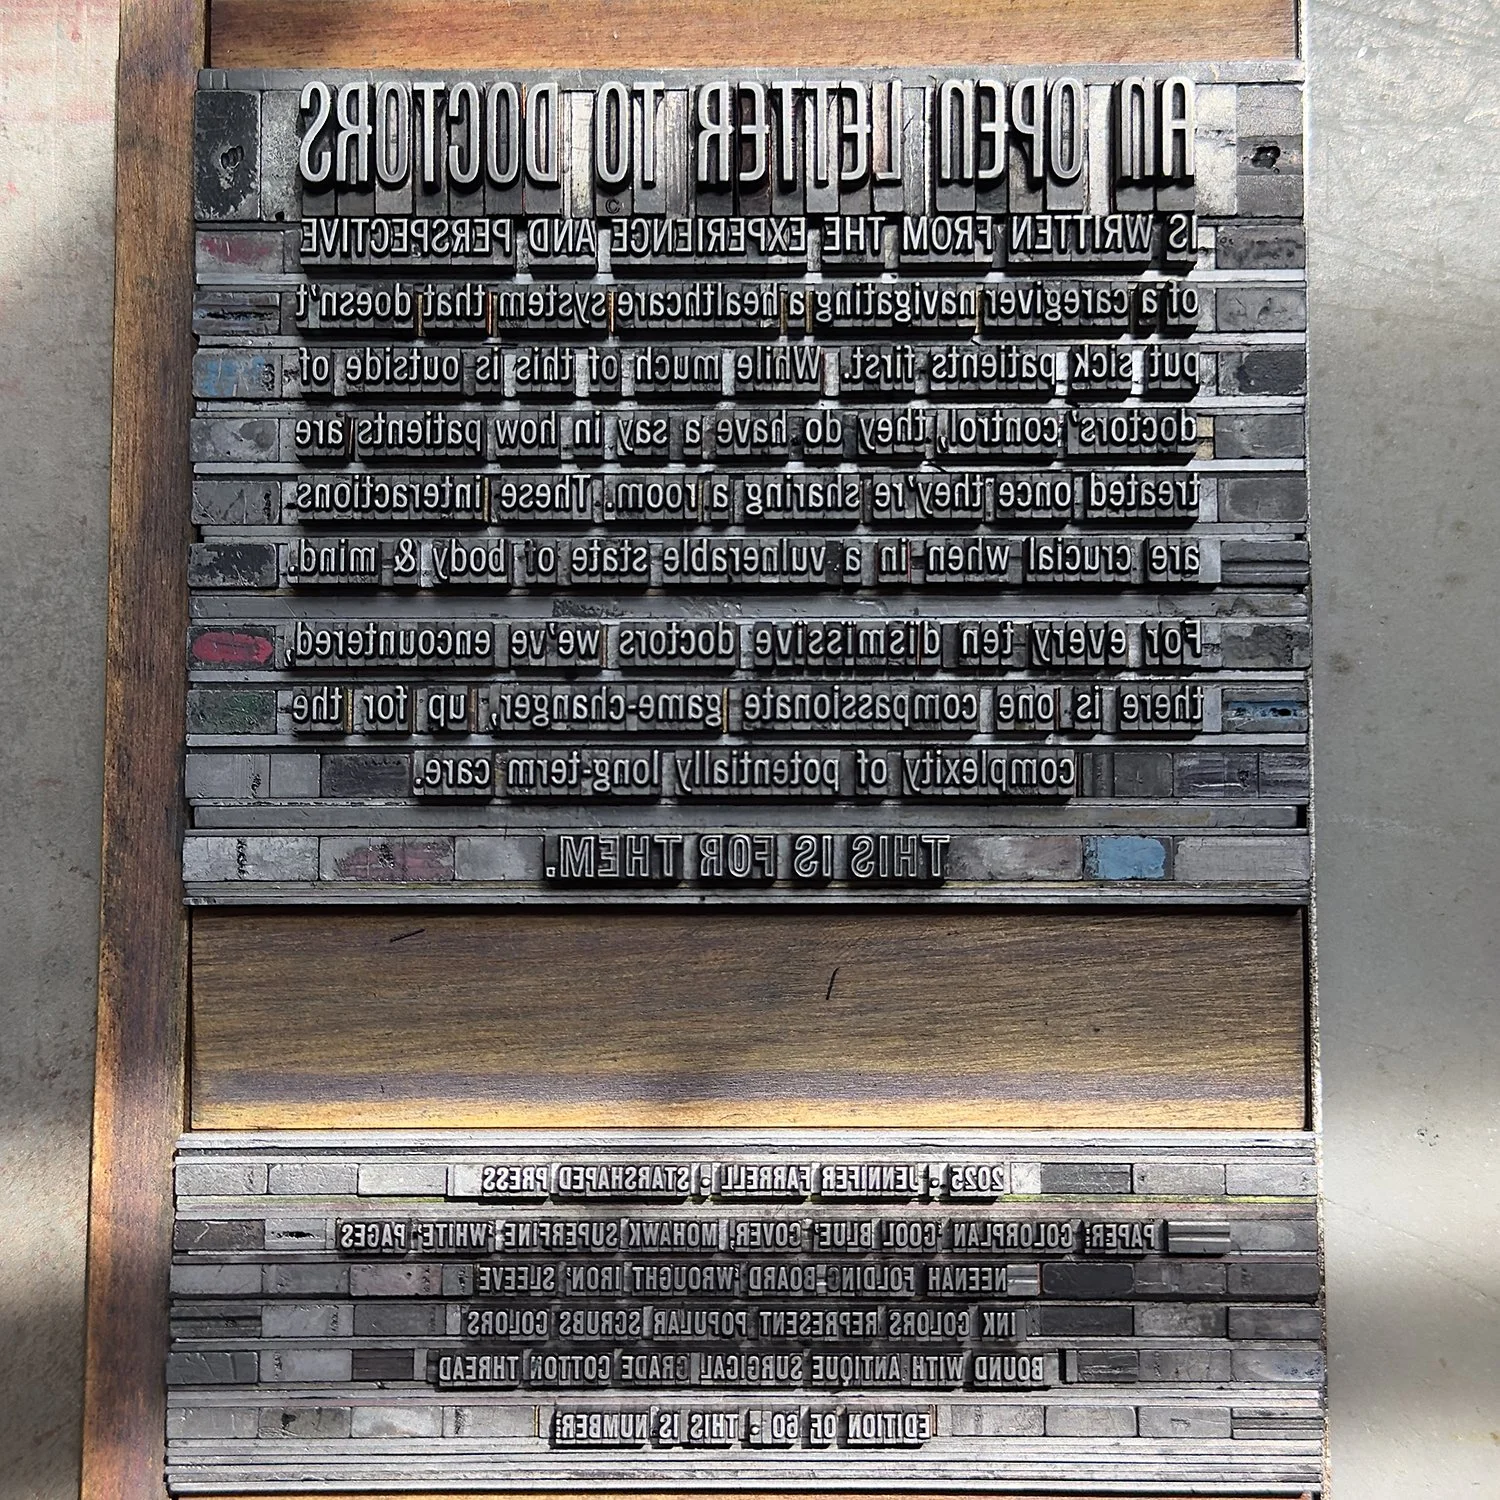 AN OPEN LETTER TO DOCTORS
IS WRITTEN FROM THE EXPERIENCE AND PERSPECTIVE
of a caregiver navigating a healthcare system that doesn't
put sick patients first. While much of this is outside of
doctors' control, they do have a say in how patients are
treated once they're sharing a room. These interactions
are crucial when in a vulnerable state of body & mind.
For every ten dismissive doctors we've encountered,
there is one compassionate game-changer, up for the
complexity of potentially long-term care.
THIS IS FOR THEM.
2025 · JENNIFER FARRELL · STARSHAPED PRESS
PAPER: COLORPLAN 'COOL BLUE' COVER, MOHAWK SUPERFINE 'WHITE' PAGES
NEENAH FOLDING BOARD 'WROUGHT IRON' SLEEVE
INK COLORS REPRESENT POPULAR SCRUBS COLORS
BOUND WITH ANTIQUE SURGICAL GRADE COTTON THREAD
EDITION OF 60 · THIS IS NUMBER: